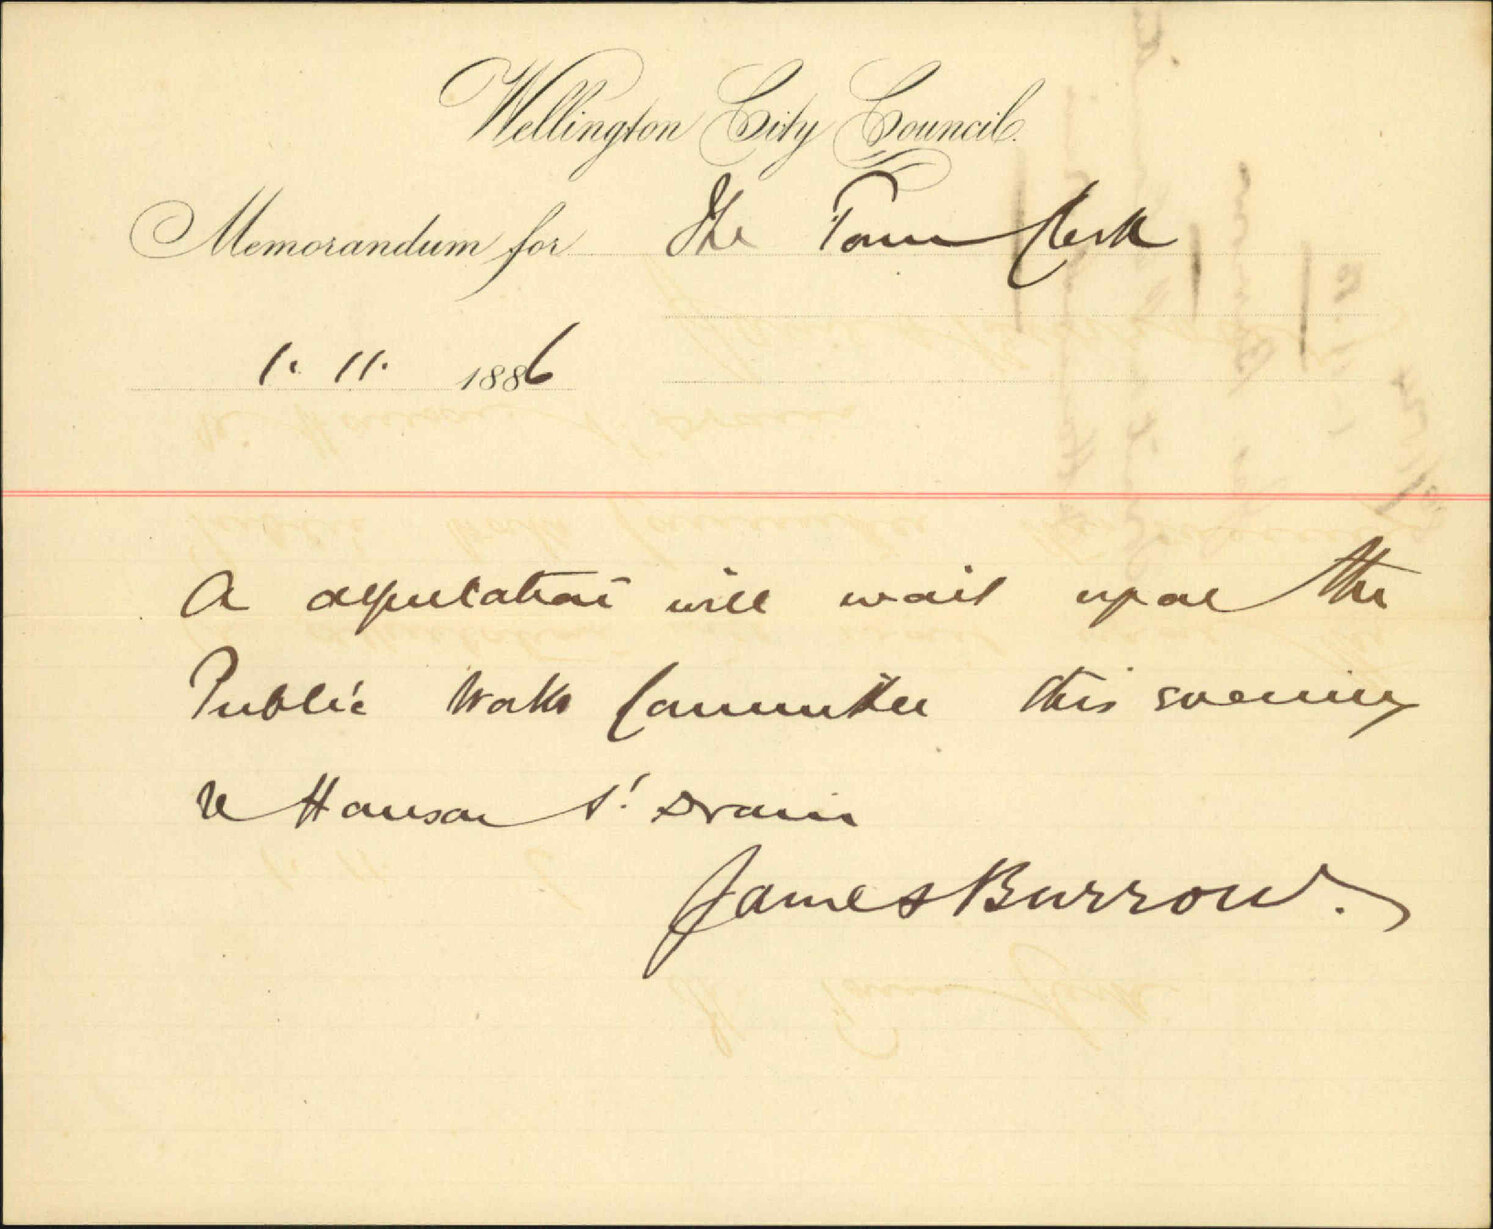 Wellington City Council.
Memorandum for The Town Clerk
1. 11. 1886
A deputation will wait upon the
Public Works Committee this evening
re Hanson St. Drain
James Burrow.